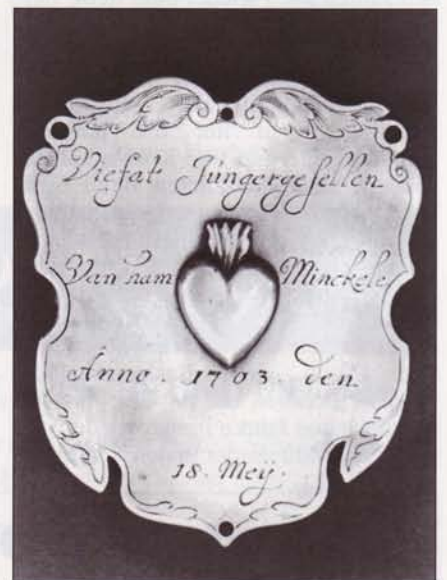 Viefat Jüngergesellen
Van ham Minckele
Anno . 1703 . den
18. Meÿ.